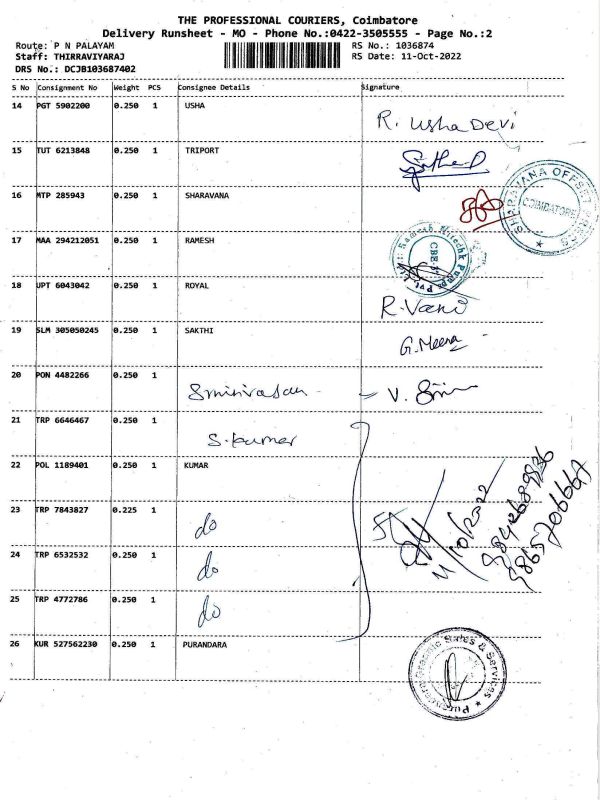 THE PROFESSIONAL COURIERS, Coimbatore
Delivery Runsheet - MO - Phone No.:0422-3505555 - Page No.:2
Route: P N PALAYAM
Staff: THIRRAVIYARAJ
DRS No.: DCJB103687402
RS No.: 1036874
RS Date: 11-Oct-2022
S No Consignment No Weight PCS Consignee Details Signature
14 PGT 5902200 0.250 1 USHA R. Usha Devi
15 TUT 6213848 0.250 1 TRIPORT
16 MTP 285943 0.250 1 SHARAVANA
SHARAVANA OFFSET PRINTERS
COIMBATORE
17 MAA 294212051 0.250 1 RAMESH
Ramesh Hitechk Pumps Pvt. Ltd.
CBE
18 UPT 6043042 0.250 1 ROYAL R. Vani
19 SLM 305050245 0.250 1 SAKTHI G. Meena
20 PON 4482266 0.250 1 Srinivasan - V. Srini
21 TRP 6646467 0.250 1 S. kumar
22 POL 1189401 0.250 1 KUMAR
23 TRP 7843827 0.225 1 do
24 TRP 6532532 0.250 1 do
25 TRP 4772786 0.250 1 do
11/10/2022
26 KUR 527562230 0.250 1 PURANDARA
Sales & Services